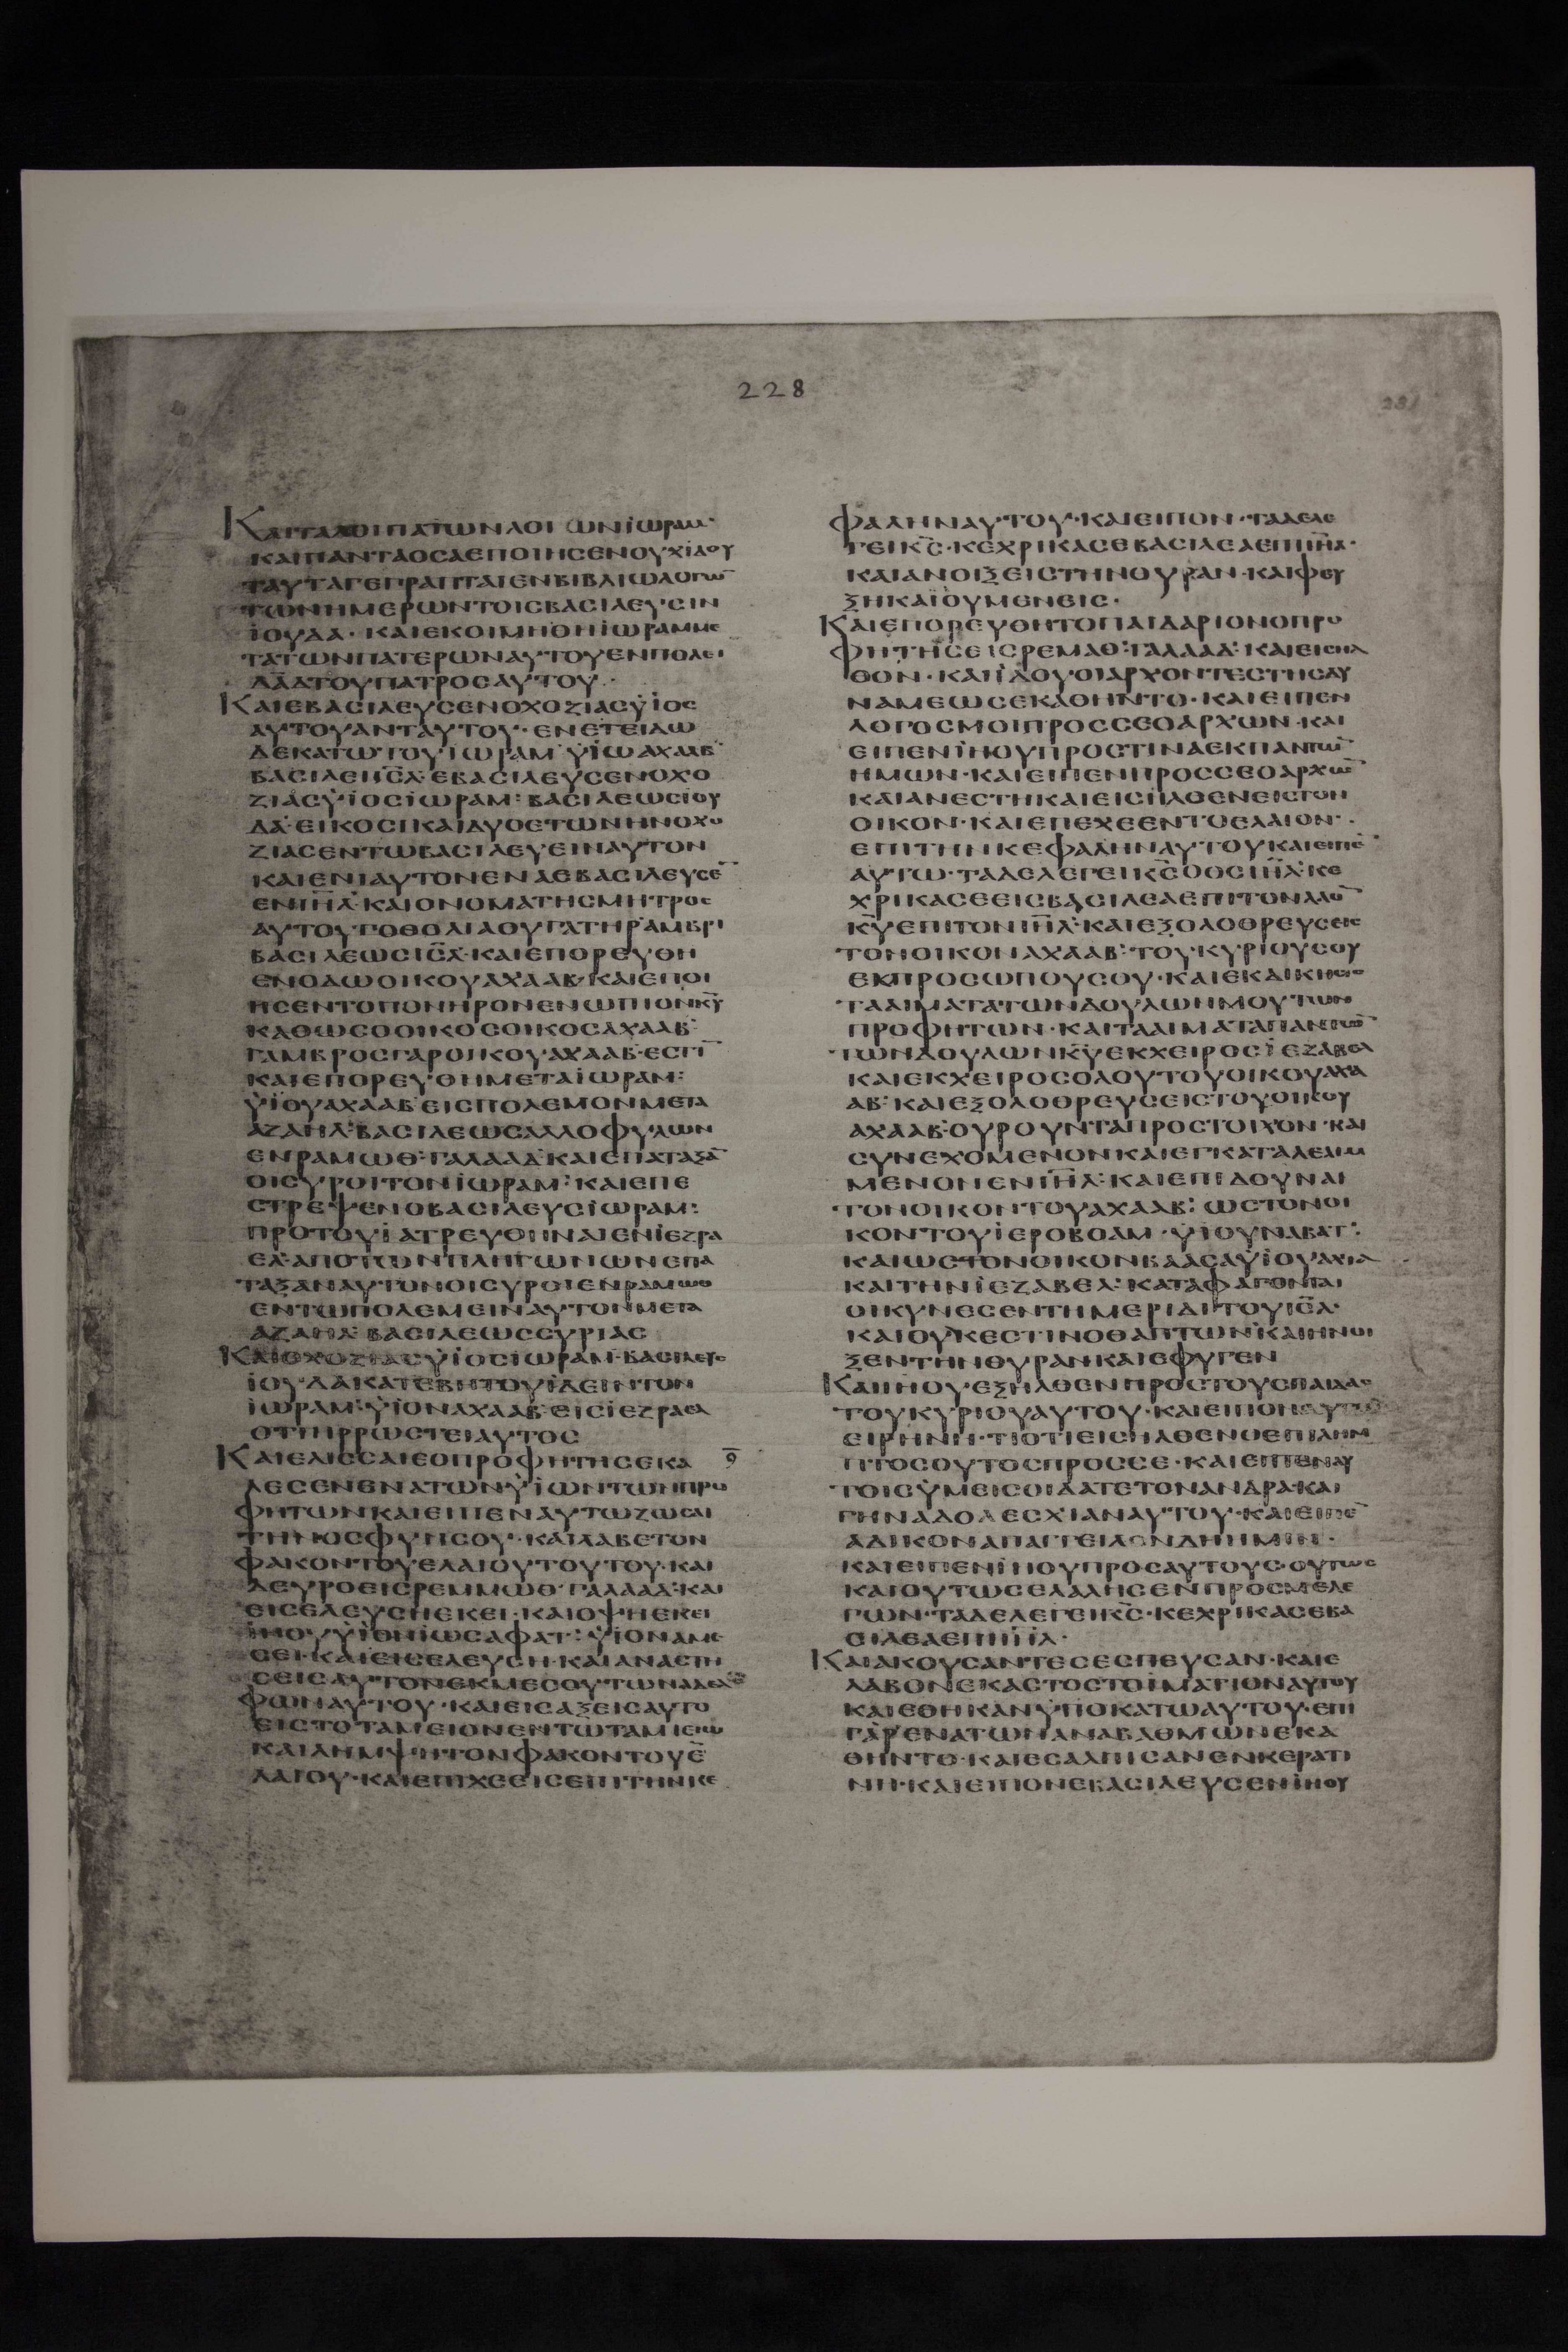 228
231
ΚΑΙΤΑΛΟΙΠΑΤΩΝΛΟΓΩΝΪΩΡΑΜ·
ΚΑΙΠΑΝΤΑΟΣΑΕΠΟΙΗΣΕΝΟΥΧΪΔΟΥ
ΤΑΥΤΑΓΕΓΡΑΠΤΑΙΕΝΒΙΒΛΙΩΛΟΓΩ̅
ΤΩΝΗΜΕΡΩΝΤΟΙΣΒΑΣΙΛΕΥΣΙΝ
ΪΟΥΔΑ· ΚΑΙΕΚΟΙΜΗΘΗΪΩΡΑΜΜΕ
ΤΑΤΩΝΠΑΤΕΡΩΝΑΥΤΟΥΕΝΠΟΛΕΙ
ΔΑ̅ΔΤΟΥΠΑΤΡΟΣΑΥΤΟΥ·
ΚΑΙΕΒΑΣΙΛΕΥΣΕΝΟΧΟΖΙΑΣΫΪΟΣ
ΑΥΤΟΥΑΝΤΑΥΤΟΥ· ΕΝΕΤΕΙΔΩ
ΔΕΚΑΤΩΤΟΥΪΩΡΑΜΫΪΩΑΧΑΑΒ
ΒΑΣΙΛΕΙΙΣ̅Λ·ΕΒΑΣΙΛΕΥΣΕΝΟΧΟ
ΖΙΑΣΫΪΟΣΪΩΡΑΜ: ΒΑΣΙΛΕΩΣΪΟΥ
ΔΑ·ΕΙΚΟΣΙΚΑΙΔΥΟΕΤΩΝΗΝΟΧΟ
ΖΙΑΣΕΝΤΩΒΑΣΙΛΕΥΕΙΝΑΥΤΟΝ
ΚΑΙΕΝΙΑΥΤΟΝΕΝΑΕΒΑΣΙΛΕΥΣΕ̅
ΕΝΙΗ̅Λ·ΚΑΙΟΝΟΜΑΤΗΣΜΗΤΡΟΣ
ΑΥΤΟΥΓΟΘΟΛΙΑΘΥΓΑΤΗΡΑΜΒΡΙ
ΒΑΣΙΛΕΩΣΙΣ̅Λ·ΚΑΙΕΠΟΡΕΥΘΗ
ΕΝΟΔΩΟΙΚΟΥΑΧΑΑΒ·ΚΑΙΕΠΟΙ
ΗΣΕΝΤΟΠΟΝΗΡΟΝΕΝΩΠΙΟΝΚ̅Υ
ΚΑΘΩΣΟΟΙΚΟΣΟΙΚΟΣΑΧΑΑΒ
ΓΑΜΒΡΟΣΓΑΡΟΙΚΟΥΑΧΑΑΒ·ΕΣΤΙ̅
ΚΑΙΕΠΟΡΕΥΘΗΜΕΤΑΪΩΡΑΜ:
ΫΪΟΥΑΧΑΑΒΕΙΣΠΟΛΕΜΟΝΜΕΤΑ
ΑΖΑΗΛ·ΒΑΣΙΛΕΩΣΑΛΛΟΦΥΛΩΝ
ΕΝΡΑΜΩΘ:ΓΑΛΑΑΔ·ΚΑΙΕΠΑΤΑΞΑ̅
ΟΙΣΥΡΟΙΤΟΝΪΩΡΑΜ: ΚΑΙΕΠΕ
ΣΤΡΕΨΕΝΟΒΑΣΙΛΕΥΣΪΩΡΑΜ:
ΠΡΟΤΟΥΪΑΤΡΕΥΘΗΝΑΙΕΝΪΕΖΡΑ
ΕΛ·ΑΠΟΤΩΝΠΛΗΓΩΝΩΝΕΠΑ
ΤΑΞΑΝΑΥΤΟΝΟΙΣΥΡΟΙΕΝΡΑΜΩΘ
ΕΝΤΩΠΟΛΕΜΕΙΝΑΥΤΟΝΜΕΤΑ
ΑΖΑΗΛ·ΒΑΣΙΛΕΩΣΣΥΡΙΑΣ
ΚΑΙΟΧΟΖΙΑΣΫΪΟΣΪΩΡΑΜ·ΒΑΣΙΛΕΥΣ
ΪΟΥΔΑΚΑΤΕΒΗΤΟΥΪΔΕΙΝΤΟΝ
ΪΩΡΑΜ:ΫΪΟΝΑΧΑΑΒ·ΕΙΣΪΕΖΡΑΕΛ
ΟΤΙΗΡΡΩΣΤΕΙΑΥΤΟΣ
ΚΑΙΕΛΙΣΣΑΙΕΟΠΡΟΦΗΤΗΣΕΚΑ
Θ̅
ΛΕΣΕΝΕΝΑΤΩΝΫΪΩΝΤΩΝΠΡΟ
ΦΗΤΩΝΚΑΙΕΙΠΕΝΑΥΤΩΖΩΣΑΙ
ΤΗΝΟΣΦΥΝΣΟΥ·ΚΑΙΛΑΒΕΤΟΝ
ΦΑΚΟΝΤΟΥΕΛΑΙΟΥΤΟΥΤΟΥ·ΚΑΙ
ΔΕΥΡΟΕΙΣΡΕΜΜΩΘ·ΓΑΛΑΑΔ·ΚΑΙ
ΕΙΣΕΛΕΥΣΗΕΚΕΙ·ΚΑΙΟΨΗΕΚΕΙ
ΪΗΟΥΫΪΟΝΪΩΣΑΦΑΤ:ΫΪΟΝΑΜΕ
ΣΕΙ·ΚΑΙΕΙΣΕΛΕΥΣΗ·ΚΑΙΑΝΑΣΤΗ
ΣΕΙΣΑΥΤΟΝΕΚΜΕΣΟΥΤΩΝΑΔΕΛ
ΦΩΝΑΥΤΟΥ·ΚΑΙΕΙΣΑΞΕΙΣΑΥΤΟ
ΕΙΣΤΟΤΑΜΕΙΟΝΕΝΤΩΤΑΜΙΕΙΩ
ΚΑΙΛΗΜΨΗΤΟΝΦΑΚΟΝΤΟΥΕ̅
ΛΑΙΟΥ·ΚΑΙΕΠΙΧΕΕΙΣΕΠΙΤΗΝΚΕ
ΦΑΛΗΝΑΥΤΟΥ·ΚΑΙΕΙΠΟΝ·ΤΑΔΕΛΕ
ΓΕΙΚ̅Σ·ΚΕΧΡΙΚΑΣΕΒΑΣΙΛΕΑΕΠΙΙΗ̅Λ·
ΚΑΙΑΝΟΙΞΕΙΣΤΗΝΘΥΡΑΝ·ΚΑΙΦΕΥ
ΞΗΚΑΙΟΥΜΕΝΕΙΣ·
ΚΑΙΕΠΟΡΕΥΘΗΤΟΠΑΙΔΑΡΙΟΝΟΠΡΟ
ΦΗΤΗΣΕΙΣΡΕΜΑΘ:ΓΑΛΑΑΔ·ΚΑΙΕΙΣΗΛ
ΘΟΝ·ΚΑΙΪΔΟΥΟΙΑΡΧΟΝΤΕΣΤΗΣΔΥ
ΝΑΜΕΩΣΕΚΑΘΗΝΤΟ·ΚΑΙΕΙΠΕΝ
ΛΟΓΟΣΜΟΙΠΡΟΣΣΕΟΑΡΧΩΝ·ΚΑΙ
ΕΙΠΕΝΪΗΟΥΠΡΟΣΤΙΝΑΕΚΠΑΝΤΩ̅
ΗΜΩΝ·ΚΑΙΕΙΠΕΝΠΡΟΣΣΕΟΑΡΧΩ̅
ΚΑΙΑΝΕΣΤΗΚΑΙΕΙΣΗΛΘΕΝΕΙΣΤΟΝ
ΟΙΚΟΝ·ΚΑΙΕΠΕΧΕΕΝΤΟΕΛΑΙΟΝ·
ΕΠΙΤΗΝΚΕΦΑΛΗΝΑΥΤΟΥΚΑΙΕΙΠΕ̅
ΑΥΤΩ·ΤΑΔΕΛΕΓΕΙΚ̅ΣΟΘΣΙΗ̅Λ·ΚΕ
ΧΡΙΚΑΣΕΕΙΣΒΑΣΙΛΕΑΕΠΙΤΟΝΛΑΟ̅
Κ̅ΥΕΠΙΤΟΝΙΗ̅Λ·ΚΑΙΕΞΟΛΟΘΡΕΥΣΕΙΣ
ΤΟΝΟΙΚΟΝΑΧΑΑΒ:ΤΟΥΚΥΡΙΟΥΣΟΥ
ΕΚΠΡΟΣΩΠΟΥΣΟΥ·ΚΑΙΕΚΔΙΚΗΣΕΙΣ
ΤΑΑΙΜΑΤΑΤΩΝΔΟΥΛΩΝΜΟΥΤΩΝ
ΠΡΟΦΗΤΩΝ·ΚΑΙΤΑΑΙΜΑΤΑΠΑΝΤΩ̅
ΤΩΝΔΟΥΛΩΝΚ̅ΥΕΚΧΕΙΡΟΣΪΕΖΑΒΕΛ
ΚΑΙΕΚΧΕΙΡΟΣΟΛΟΥΤΟΥΟΙΚΟΥΑΧΑ
ΑΒ:ΚΑΙΕΞΟΛΟΘΡΕΥΣΕΙΣΤΟΥΟΙΚΟΥ
ΑΧΑΑΒ·ΟΥΡΟΥΝΤΑΠΡΟΣΤΟΙΧΟΝ·ΚΑΙ
ΣΥΝΕΧΟΜΕΝΟΝΚΑΙΕΓΚΑΤΑΛΕΛΙΜ
ΜΕΝΟΝΕΝΙΗ̅Λ:ΚΑΙΕΠΙΔΟΥΝΑΙ
ΤΟΝΟΙΚΟΝΤΟΥΑΧΑΑΒ:ΩΣΤΟΝΟΙ
ΚΟΝΤΟΥΪΕΡΟΒΟΑΜ·ΫΪΟΥΝΑΒΑΤ:
ΚΑΙΩΣΤΟΝΟΙΚΟΝΒΑΑΣΑΫΪΟΥΑΧΙΑ
ΚΑΙΤΗΝΪΕΖΑΒΕΛ:ΚΑΤΑΦΑΓΟΝΤΑΙ
ΟΙΚΥΝΕΣΕΝΤΗΜΕΡΙΔΙΤΟΥΙΣ̅Λ·
ΚΑΙΟΥΚΕΣΤΙΝΟΘΑΠΤΩΝ·ΚΑΙΗΝΟΙ
ΞΕΝΤΗΝΘΥΡΑΝΚΑΙΕΦΥΓΕΝ
ΚΑΙΙΗΟΥ·ΕΞΗΛΘΕΝΠΡΟΣΤΟΥΣΠΑΙΔΑΣ
ΤΟΥΚΥΡΙΟΥΑΥΤΟΥ·ΚΑΙΕΙΠΟΝΑΥΤΩ
ΕΙΡΗΝΗ·ΤΙΟΤΙΕΙΣΗΛΘΕΝΟΕΠΙΛΗΜ
ΠΤΟΣΟΥΤΟΣΠΡΟΣΣΕ·ΚΑΙΕΙΠΕΝΑΥ
ΤΟΙΣΫΜΕΙΣΟΙΔΑΤΕΤΟΝΑΝΔΡΑ·ΚΑΙ
ΤΗΝΑΔΟΛΕΣΧΙΑΝΑΥΤΟΥ·ΚΑΙΕΙΠΕ̅
ΑΔΙΚΟΝΑΠΑΓΓΕΙΛΟΝΔΗΗΜΙΝ·
ΚΑΙΕΙΠΕΝΪΗΟΥΠΡΟΣΑΥΤΟΥΣ·ΟΥΤΩΣ
ΚΑΙΟΥΤΩΣΕΛΑΛΗΣΕΝΠΡΟΣΜΕΛΕ
ΓΩΝ·ΤΑΔΕΛΕΓΕΙΚ̅Σ·ΚΕΧΡΙΚΑΣΕΒΑ
ΣΙΛΕΑΕΠΙΙΗ̅Λ·
ΚΑΙΑΚΟΥΣΑΝΤΕΣΕΣΠΕΥΣΑΝ·ΚΑΙΕ
ΛΑΒΟΝΕΚΑΣΤΟΣΤΟΪΜΑΤΙΟΝΑΥΤΟΥ
ΚΑΙΕΘΗΚΑΝΫΠΟΚΑΤΩΑΥΤΟΥ·ΕΠΙ
ΓΑΡΕΝΑΤΩΝΑΝΑΒΑΘΜΩΝΕΚΑ
ΘΗΝΤΟ·ΚΑΙΕΣΑΛΠΙΣΑΝΕΝΚΕΡΑΤΙ
ΝΗ·ΚΑΙΕΙΠΟΝΕΒΑΣΙΛΕΥΣΕΝΪΗΟΥ